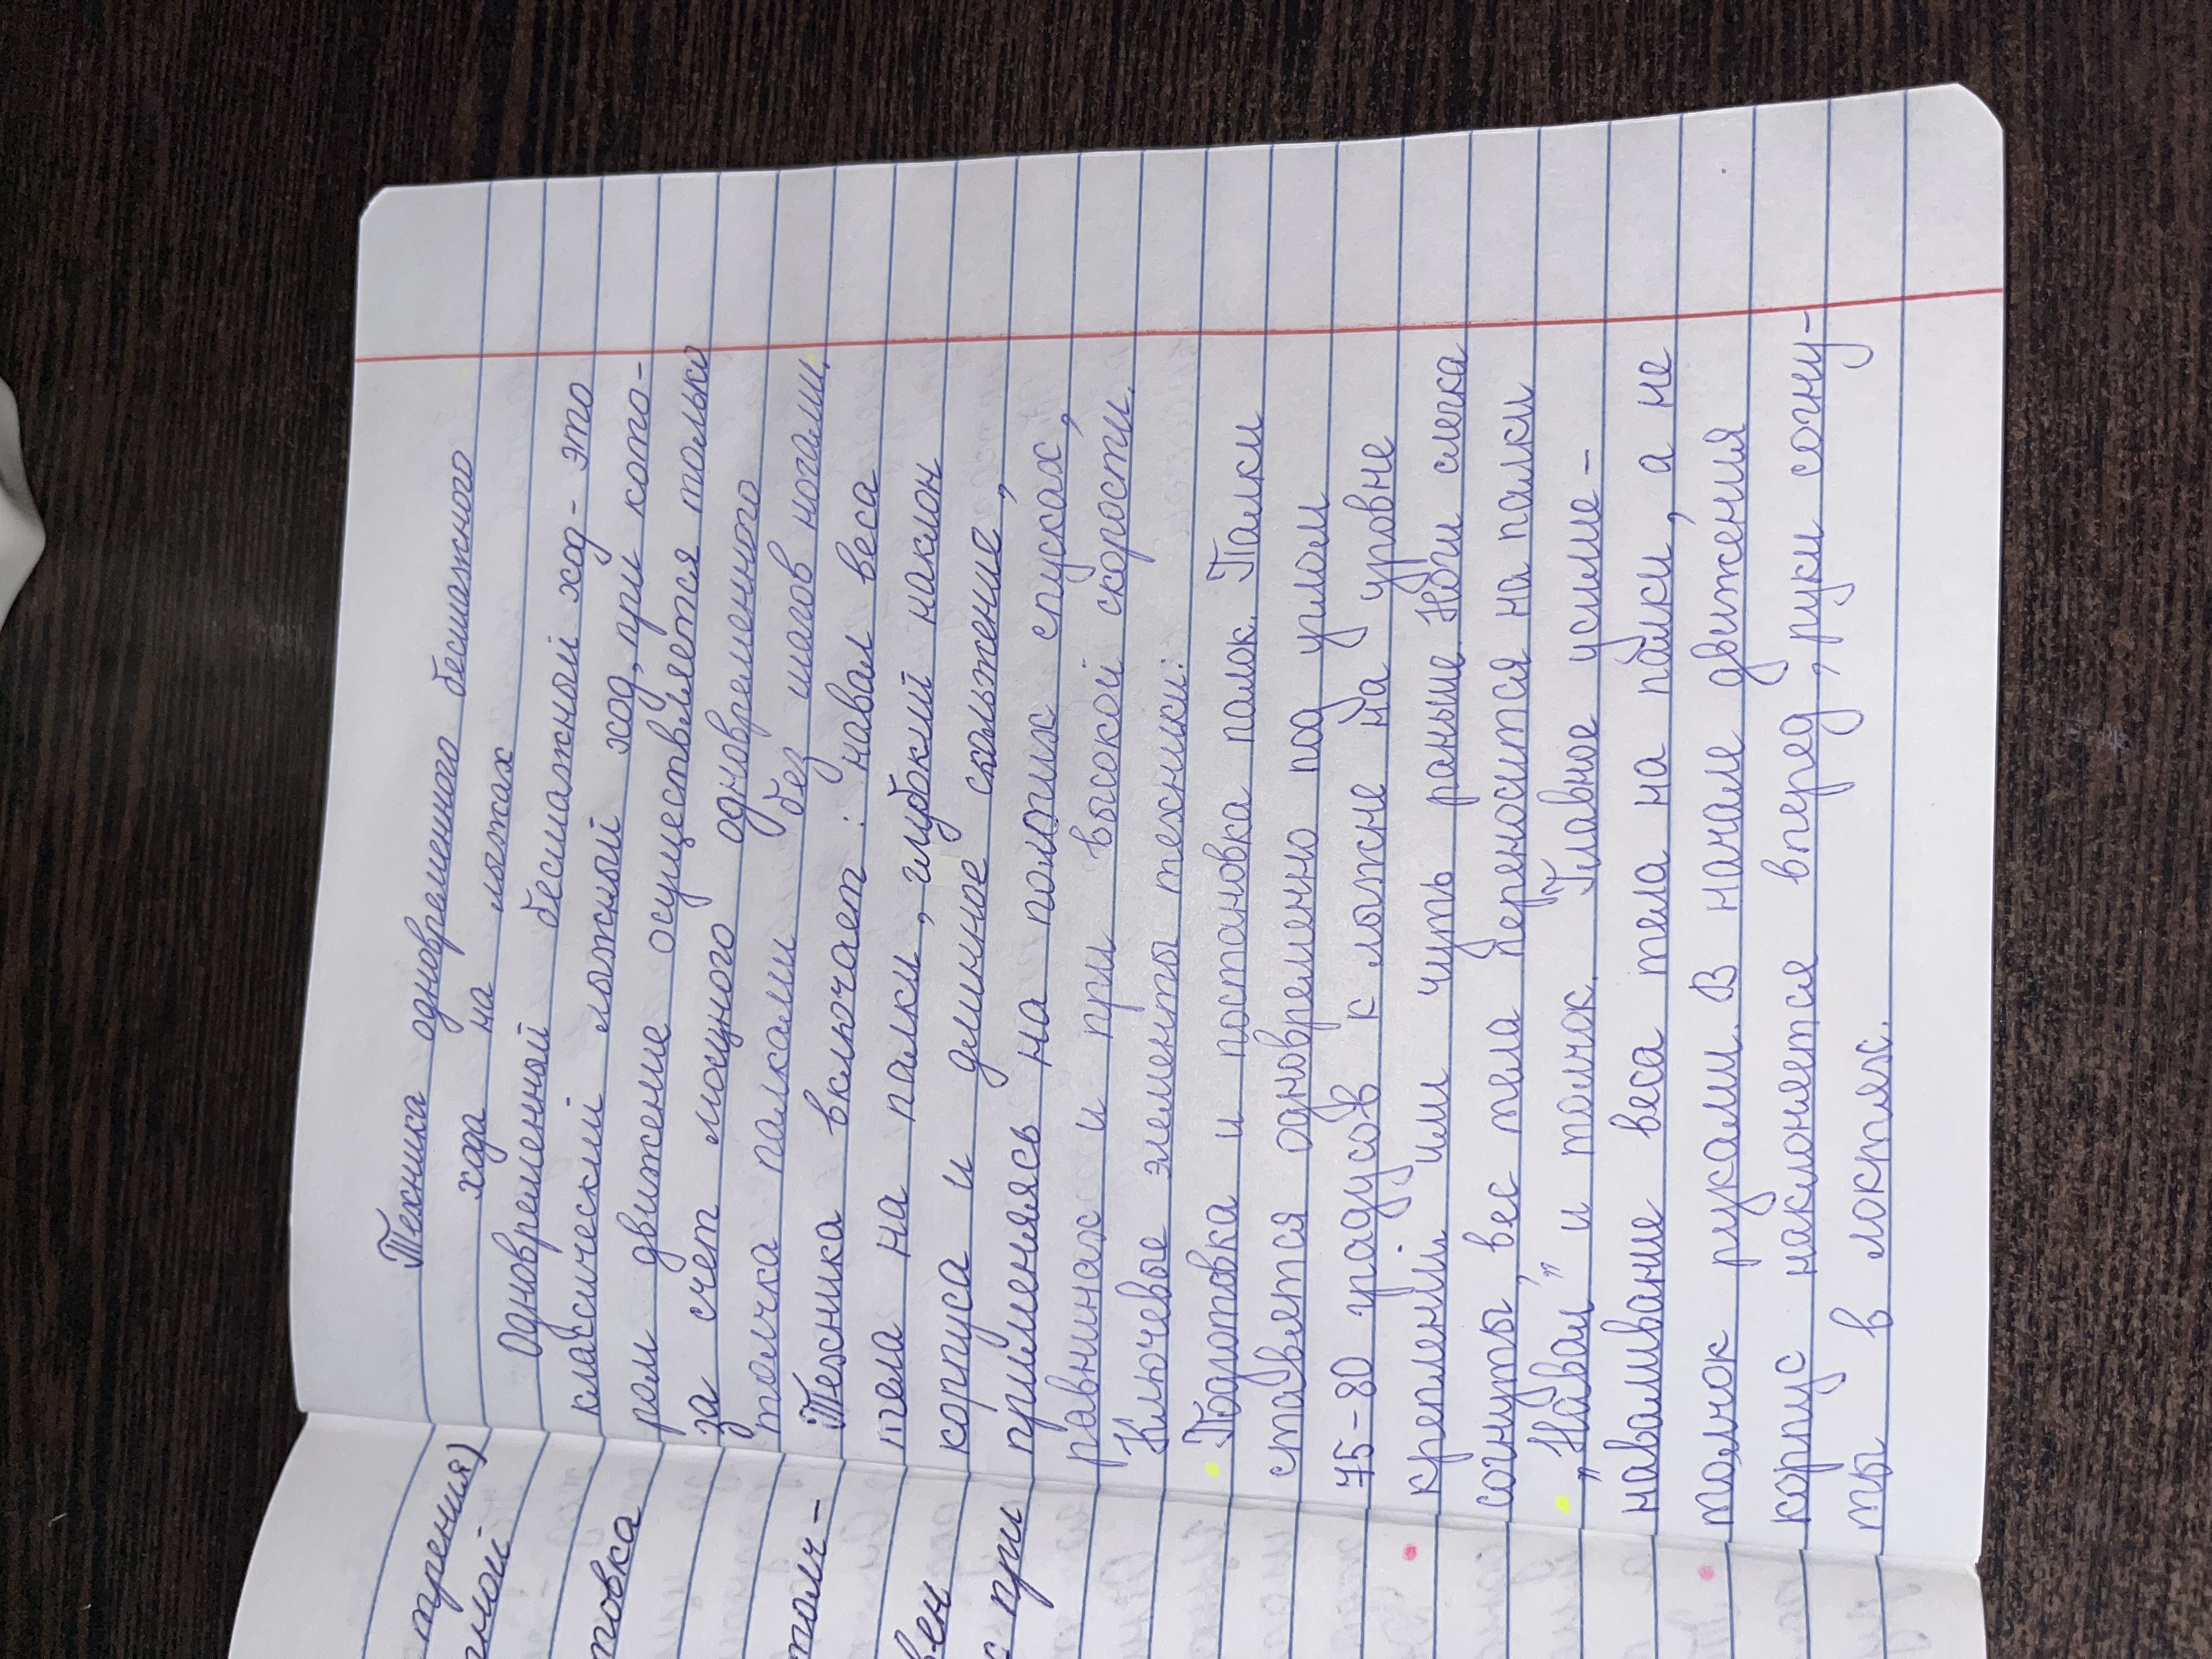 трения)
мой
товка
толч-
вен
с при
Техника одновременного бесшажного
хода на лыжах
Одновременный бесшажный ход - это
классический лыжный ход, при кото-
ром движение осуществляется только
за счет мощного одновременного
толчка палками без шагов ногами.
Техника включает: навал веса
тела на палки, глубокий наклон
корпуса и длинное скольжение,
применяясь на пологих спусках,
равнинах и при высокой скорости.
Ключевые элементы техники:
• Подготовка и постановка палок. Палки
ставятся одновременно под углом
75-80 градусов к лыжне на уровне
креплений или чуть раньше. Ноги слегка
согнуты, вес тела переносится на палки
• „Навал” и толчок. Главное усилие -
наваливание веса тела на палки, а не
толчок руками. В начале движения
корпус наклоняется вперед, руки согну-
ты в локтях.